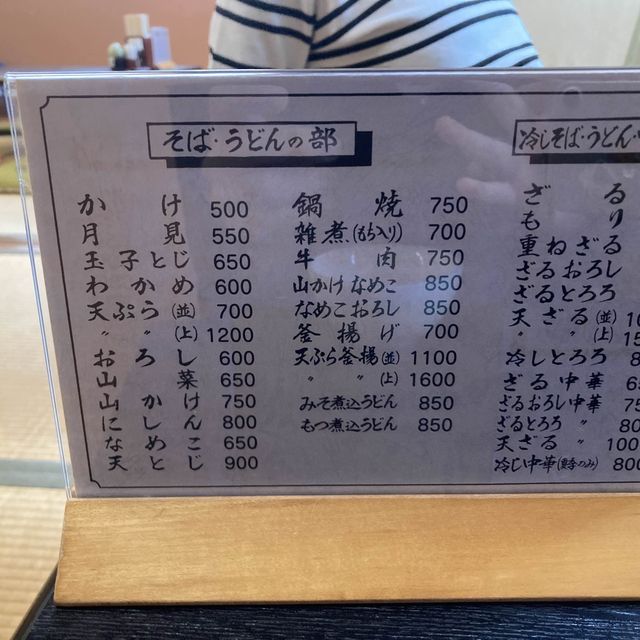 そば・うどんの部
かけ 500
月見 550
玉子とじ 650
わかめ 600
天ぷら(並) 700
〃 〃(上) 1200
おろし 600
山菜 650
山かけ 750
にしん 800
なめこ 650
天とじ 900
鍋焼 750
雑煮(もち入り) 700
牛肉 750
山かけなめこ 850
なめこおろし 850
釜揚げ 700
天ぷら釜揚(並) 1100
〃 〃(上) 1600
みそ煮込うどん 850
もつ煮込うどん 850
冷しそば・うどん・
ざる
もり
重ねざる
ざるおろし
ざるとろろ
天ざる(並) 10
〃 〃(上) 15
冷しとろろ 8
ざる中華 6
ざるおろし中華 75
ざるとろろ 〃 80
天ざる 〃 100
冷し中華(夏季のみ) 800